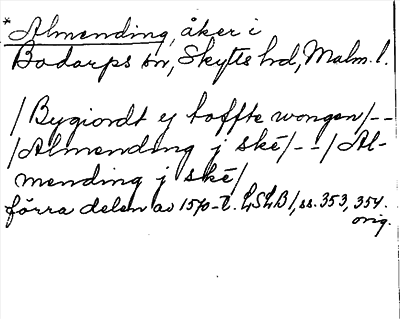 * Almending, åker i
Bodarps sn, Skytts hd, Malm. l.
/Bygiordt ej toffte wongen/--
/Almending j ské/--/Al-
mending j ské/
förra delen av 1570-t. LSLB 1, ss. 353, 354.
orig.